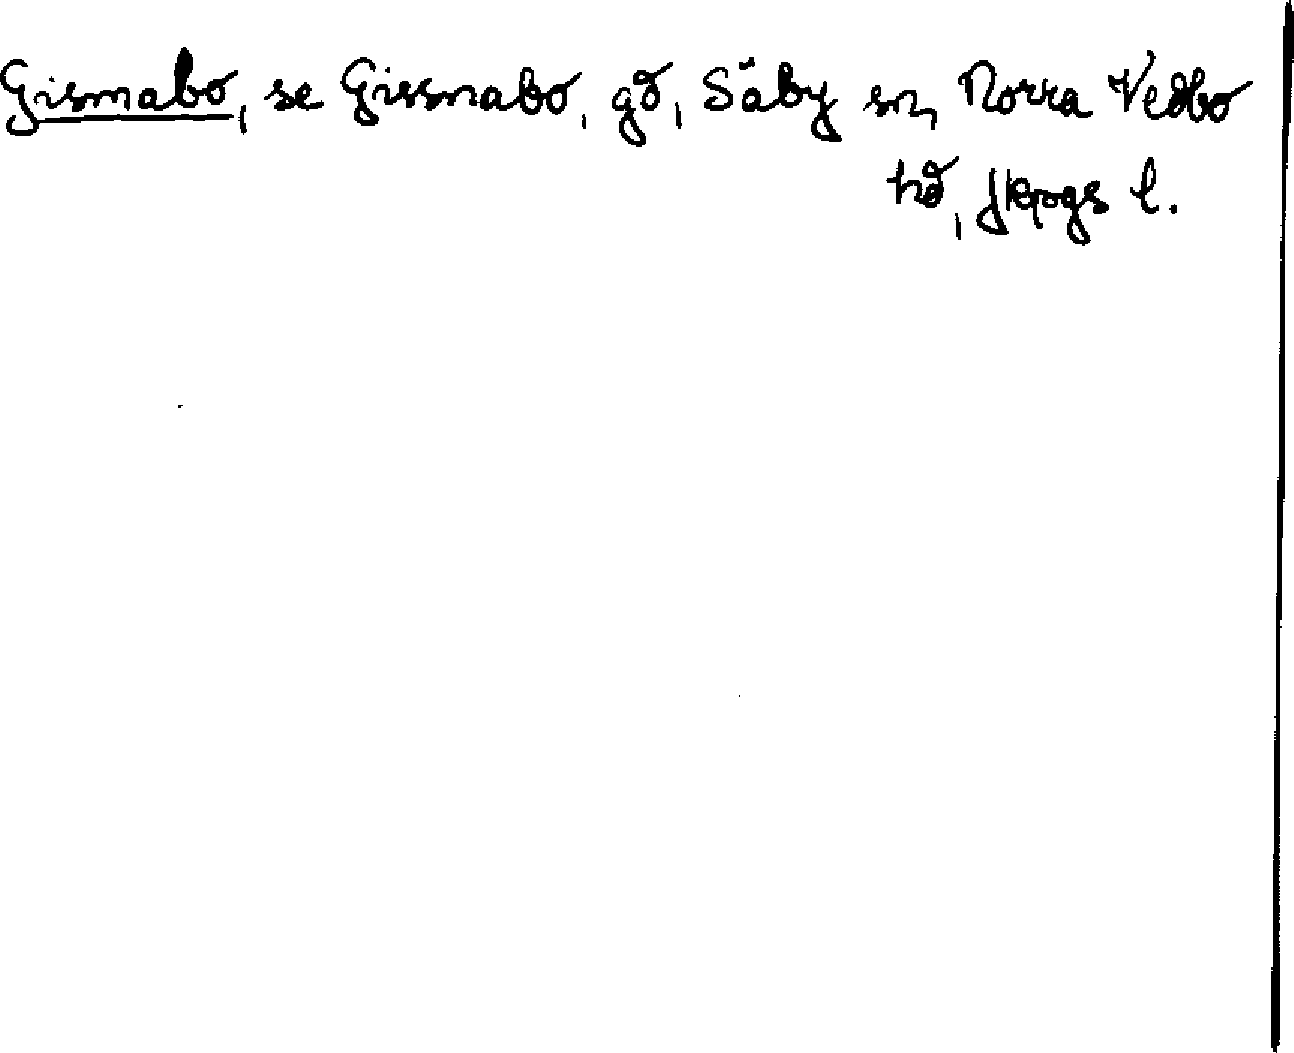 Gismabo, se Gissnabo, gd, Säby sn, Norra Vedbo
hd, Jkpgs l.